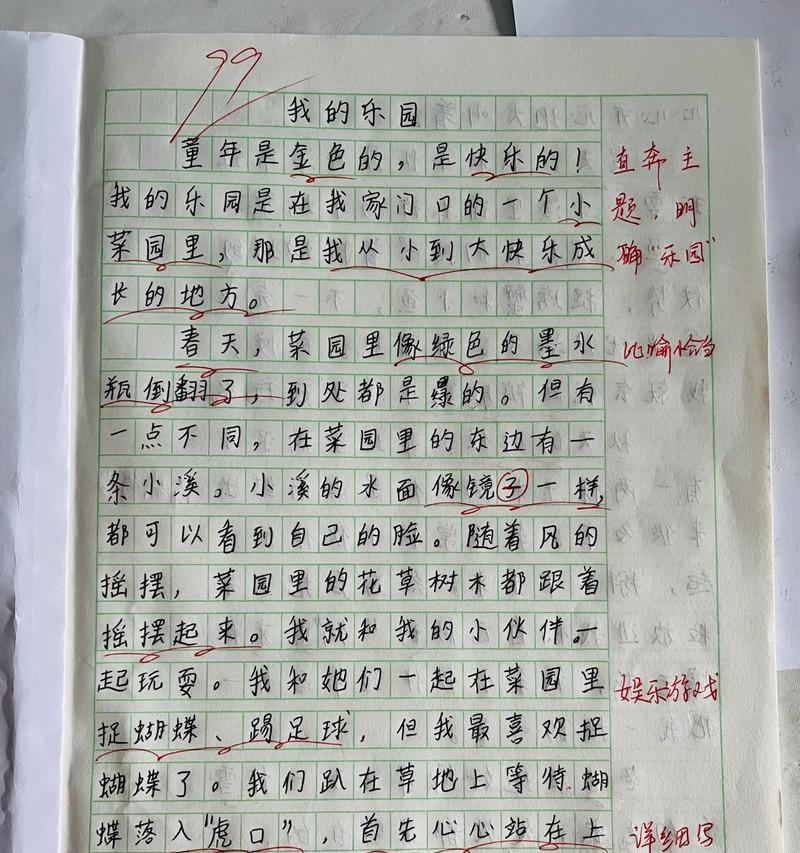 99
我的乐园
童年是金色的，是快乐的！
直奔主
我的乐园是在我家门口的一个小
题，明
菜园里，那是我从小到大快乐成
确“乐园”
长的地方。
春天，菜园里像绿色的墨水
比喻恰当
瓶倒翻了，到处都是绿的。但有
一点不同，在菜园里的东边有一
条小溪。小溪的水面像镜子一样，
都可以看到自己的脸。随着风的
摇摆，菜园里的花草树木都跟着
摇摆起来。我就和我的小伙伴一
起玩耍。我和她们一起在菜园里
娱乐游戏
捉蝴蝶、踢足球，但我最喜欢捉
蝴蝶了。我们趴在草地上等待蝴
蝶落入“虎口”，首先心心站在上
详细写